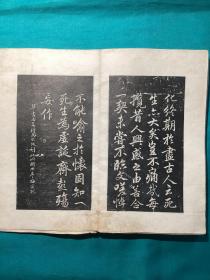 化終期於盡古人云死
生亦大矣豈不痛哉每
攬昔人興感之由若合
一契未嘗不臨文嗟悼
不能喻之於懷固知一
死生為虛誕齊彭殤
妄作